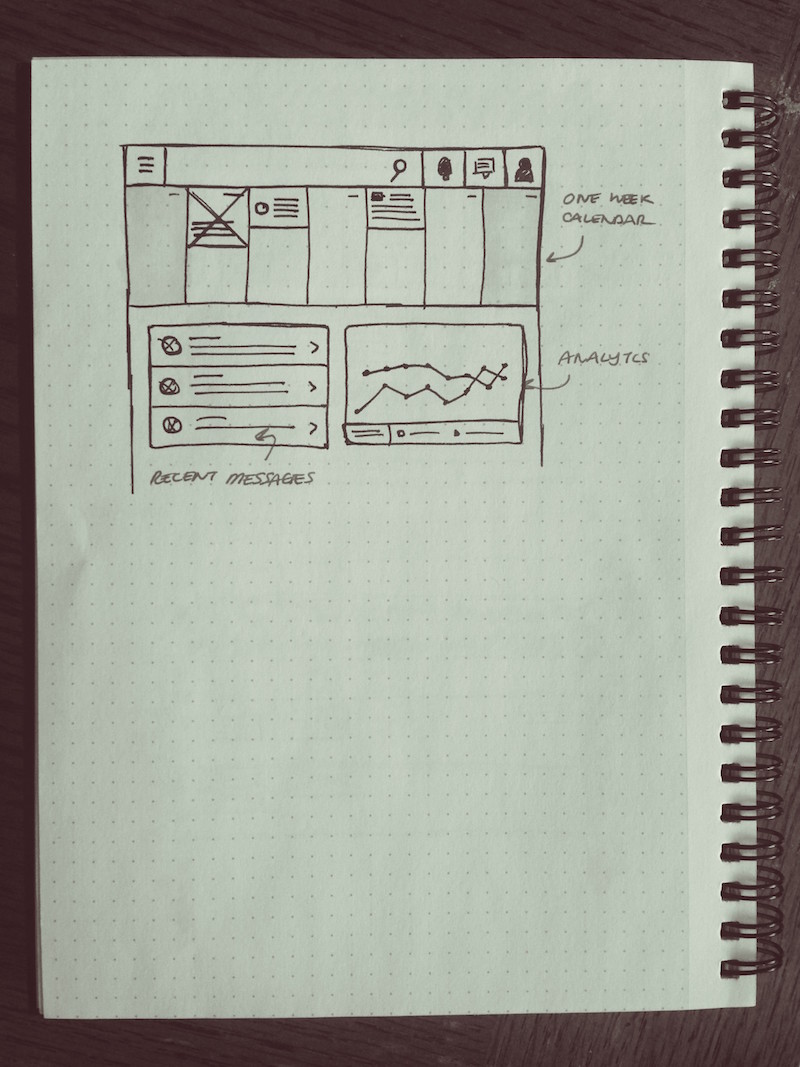 ONE WEEK
CALENDAR
ANALYTICS
RECENT MESSAGES